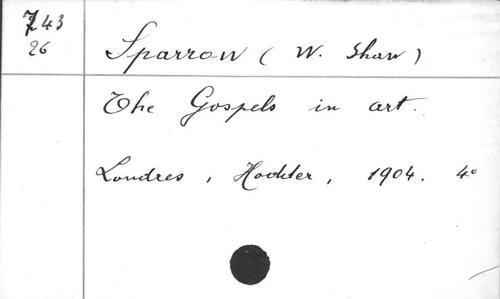 743
26
Sparrow ( W. Shaw )
The Gospels in art.
Londres, Hodder, 1904. 4°